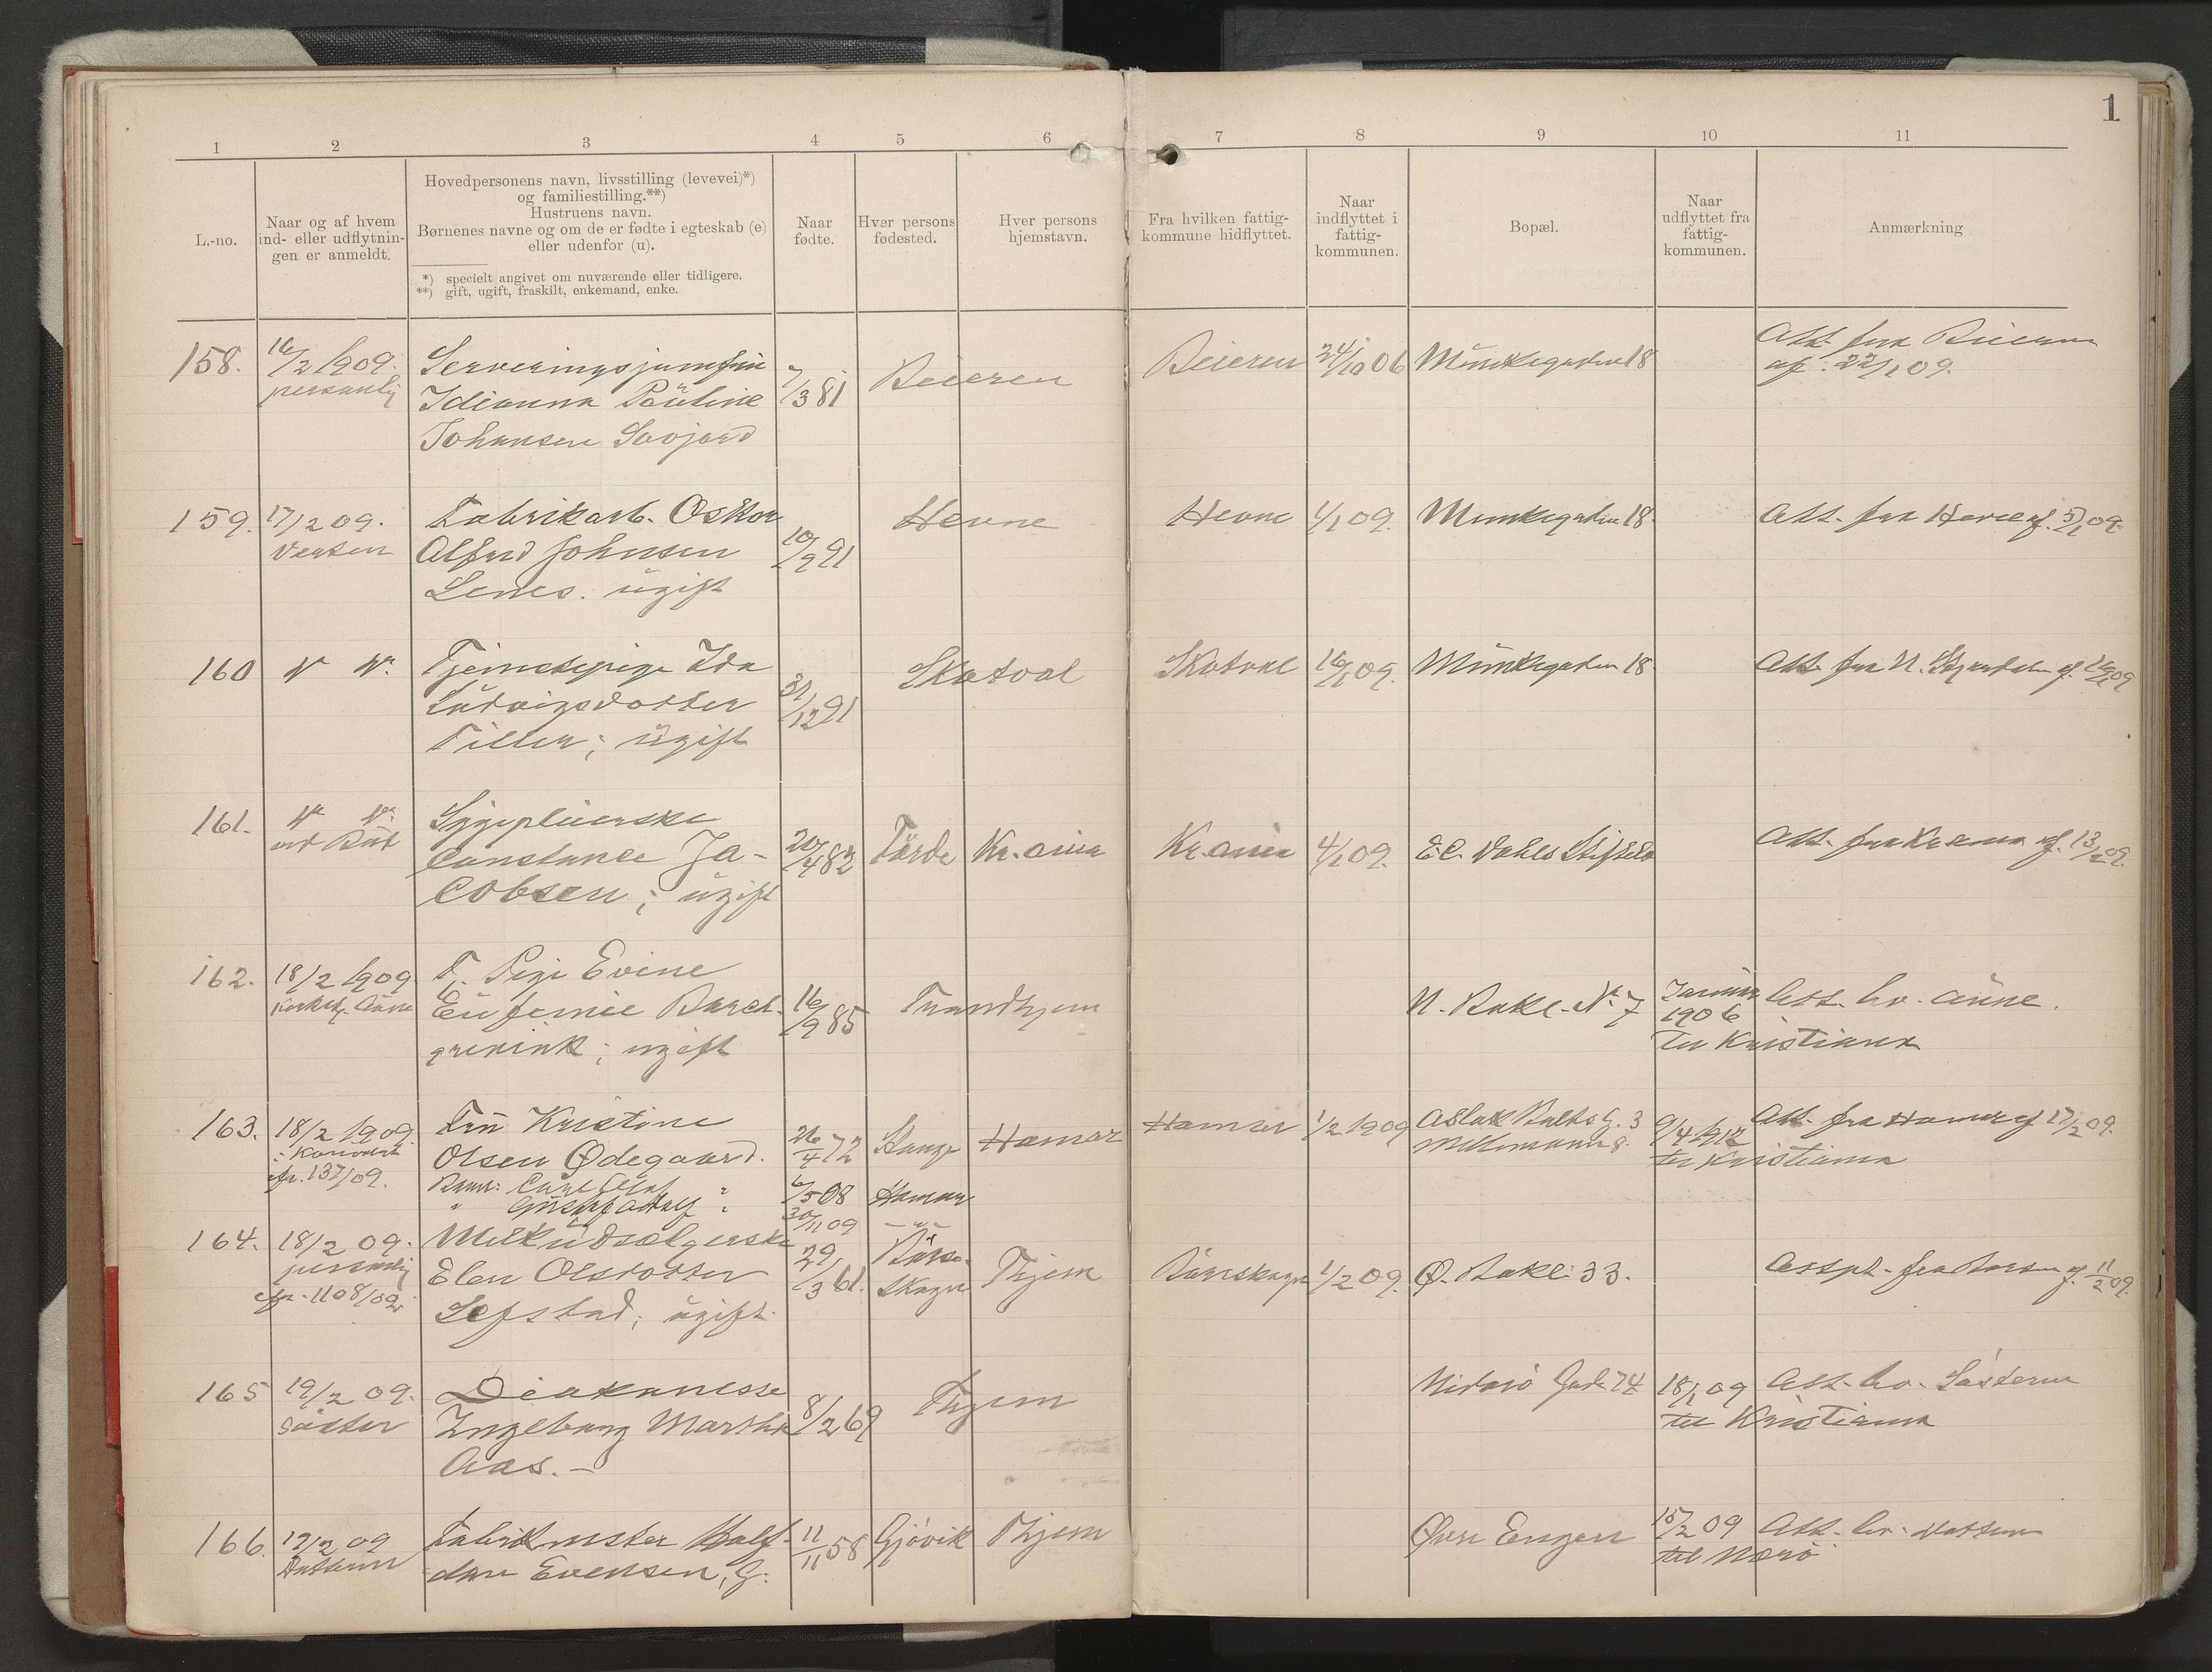 1
1 2 3 4 5 6 7 8 9 10 11
L.-no.
Naar og af hvem
ind- eller udflytnin-
gen er anmeldt.
Hovedpersonens navn, livsstilling (levevei)*)
og familiestilling.**)
Hustruens navn.
Børnenes navne og om de er fødte i egteskab (e)
eller udenfor (u).
*) specielt angivet om nuværende eller tidligere.
**) gift, ugift, fraskilt, enkemand, enke.
Naar
fødte.
Hver persons
fødested.
Hver persons
hjemstavn.
Fra hvilken fattig-
kommune hidflyttet.
Naar
indflyttet i
fattig-
kommunen.
Bopæl.
Naar
udflyttet fra
fattig-
kommunen.
Anmærkning
158.
16/2 1909.
personlig
Serveringsjomfru
Idianna Pauline
Johansen Savjord
7/3 81
Beieren
Beieren
24/10 06
Munkegaden 18
Att. fra Beieren
af 22/1 09.
159.
17/2 09.
Verten
Fabrikarb. Oskar
Alfred Johnsen
Lenes. ugift
10/9 91
Hevne
Hevne
1/1 09.
Munkegaden 18.
Att. fra Hevne af 5/1 09.
160
Tjenestepige Ida
Ludvigsdatter
Tiller; ugift
31/12 91
Skatval
Skatval
16/1 09.
Munkegaden 18.
Att. fra N. Stjørdalen af 16/1 09
161.
ved Bud
Sygepleierske
Constance Ja-
cobsen; ugift
20/4 82
Førde
Kr.ania
Kr.ania
4/1 09.
E.C. Dahls Stiftelse
Att. fra Kr.ania af 13/2 09.
162.
18/2 1909
T. Pige Evine
Eufemie Barch-
grevink; ugift
16/9 85
Trondhjem
N. Bakl. N. 7
Januar
1906
til Kristiania
Att. hv. Aune.
163.
18/2 1909.
: Kontoret
cfr. 137/09.
Fru Kristine
Olsen Ødegaard.
Børn: Carl Olaf "
" Gustaf Adolf "
26/4 72
6/5 08
30/11 09
Stange
Hamar
— " —
Hamar
Hamar
1/2 1909
Aslak Bolts G. 3
Mellemveien 8.
9/4 1912
til Kristiania
Att. fra Hamar af 17/2 09.
164.
18/2 09.
personlig
cfr. 1108/09
Melkeudsælgerske
Elen Olsdatter
Sefstad; ugift.
29/3 61.
Børse-
skogn
Thjem
Børseskogn
1/2 09.
Ø. Bakl: 33.
fra Børsen af 11/2 09.
165
19/2 09.
Søster
Diakonesse
Ingeborg Martha
Aas. —
8/2 69
Thjem
Nidarø Gade 74
18/1 09
til Kristiania
Att. hv. Søsteren
166.
19/2 09
Datteren
Fabrikmester Half-
dan Evensen, G.
11/11 58
Gjøvik
Thjem
Øvre Engen
15/2 09
til Nærø
Att. hv. datteren